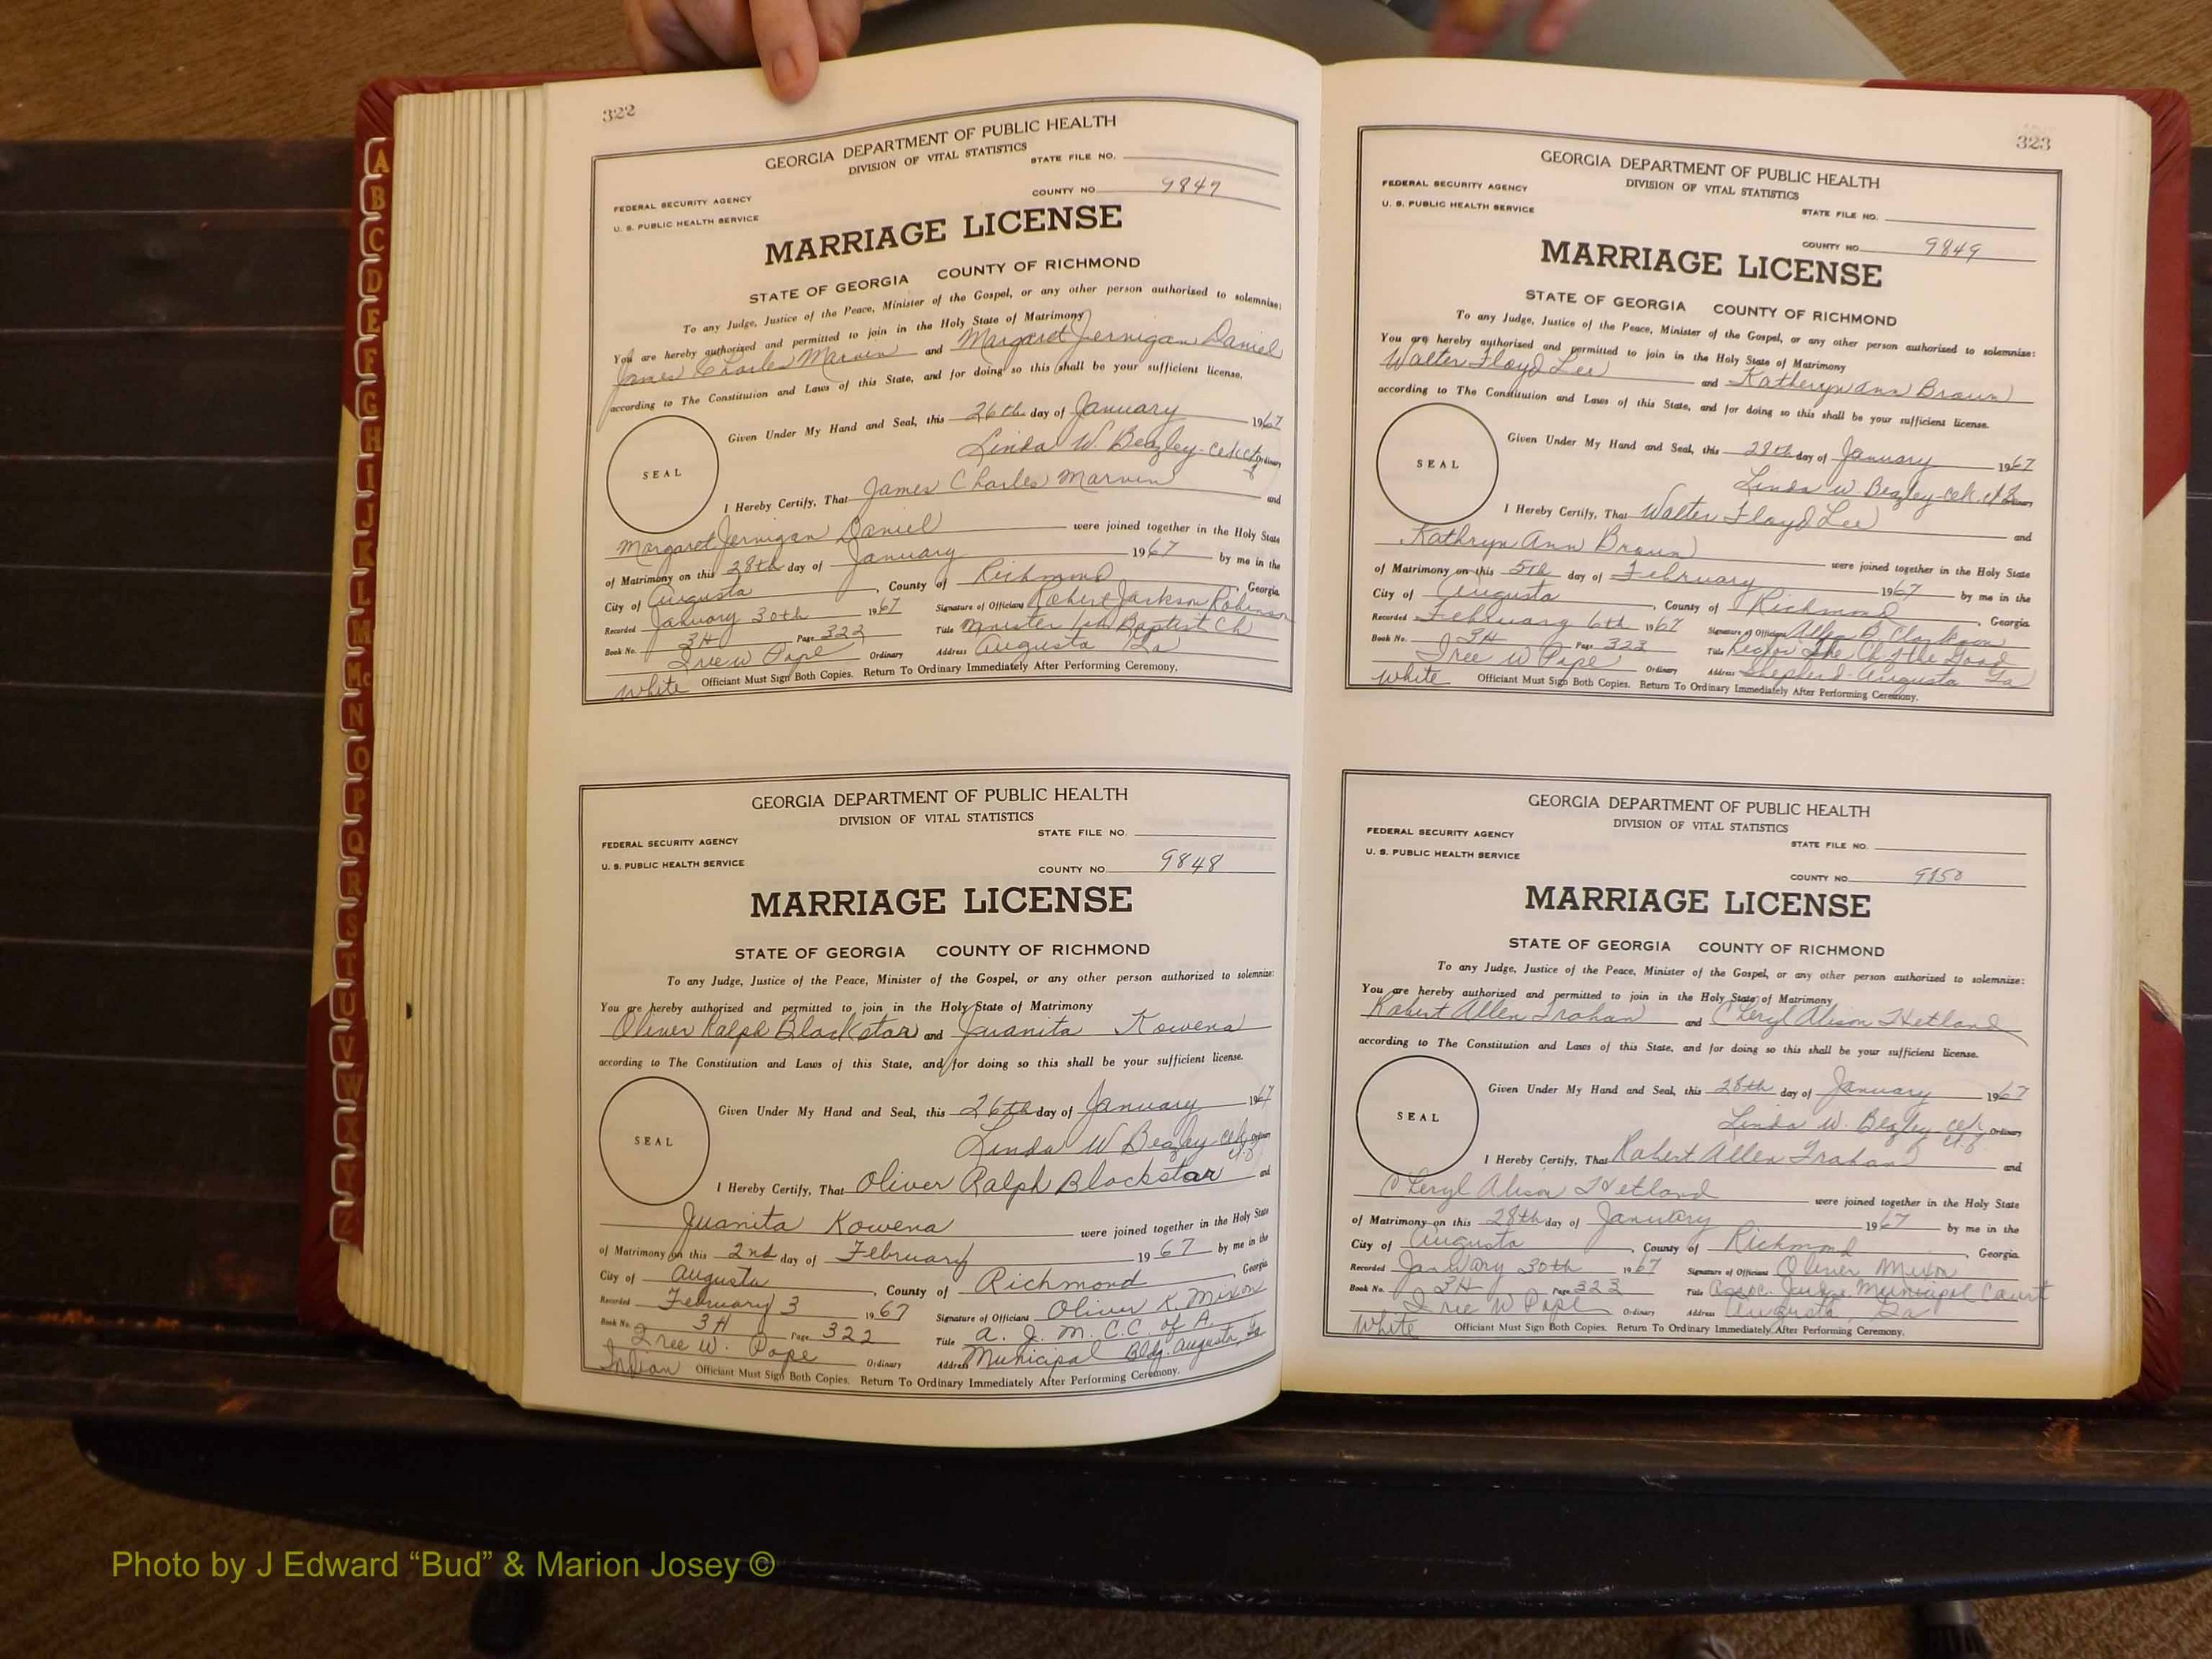 322
GEORGIA DEPARTMENT OF PUBLIC HEALTH
DIVISION OF VITAL STATISTICS
STATE FILE NO.
COUNTY NO. 9847
FEDERAL SECURITY AGENCY
U. S. PUBLIC HEALTH SERVICE
MARRIAGE LICENSE
STATE OF GEORGIA COUNTY OF RICHMOND
To any Judge, Justice of the Peace, Minister of the Gospel, or any other person authorized to solemnize:
You are hereby authorized and permitted to join in the Holy State of Matrimony
James Charles Marvin and Margaret Jernigan Daniel
according to The Constitution and Laws of this State, and for doing so this shall be your sufficient license.
SEAL
Given Under My Hand and Seal, this 26th day of January 1967
Linda W. Beazley - Ordinary
I Hereby Certify, That James Charles Marvin and
Margaret Jernigan Daniel were joined together in the Holy State
of Matrimony on this 28th day of January 1967 by me in the
City of Augusta, County of Richmond, Georgia
Recorded January 30th 1967 Signature of Officiant Robert Jackson Robinson
Book No. 3H Page 322 Title Minister 1st Baptist Ch
Iree W Pope Ordinary Address Augusta Ga
white Officiant Must Sign Both Copies. Return To Ordinary Immediately After Performing Ceremony.
GEORGIA DEPARTMENT OF PUBLIC HEALTH
DIVISION OF VITAL STATISTICS
STATE FILE NO.
FEDERAL SECURITY AGENCY
U. S. PUBLIC HEALTH SERVICE
COUNTY NO. 9848
MARRIAGE LICENSE
STATE OF GEORGIA COUNTY OF RICHMOND
To any Judge, Justice of the Peace, Minister of the Gospel, or any other person authorized to solemnize:
You are hereby authorized and permitted to join in the Holy State of Matrimony
Oliver Ralph Blackstar and Juanita Kowena
according to The Constitution and Laws of this State, and for doing so this shall be your sufficient license.
SEAL
Given Under My Hand and Seal, this 26th day of January 1967
Linda W Beazley - Ordinary
I Hereby Certify, That Oliver Ralph Blackstar and
Juanita Kowena were joined together in the Holy State
of Matrimony on this 2nd day of February 1967 by me in the
City of Augusta, County of Richmond, Georgia
Recorded February 3 1967 Signature of Officiant Oliver K. Mixon
Book No. 3H Page 322 Title A. J. M. C.C. of A.
Iree W. Pope Ordinary Address Municipal Bldg. Augusta, Ga
Indian Officiant Must Sign Both Copies. Return To Ordinary Immediately After Performing Ceremony.
323
GEORGIA DEPARTMENT OF PUBLIC HEALTH
DIVISION OF VITAL STATISTICS
FEDERAL SECURITY AGENCY
U. S. PUBLIC HEALTH SERVICE
STATE FILE NO.
COUNTY NO. 9849
MARRIAGE LICENSE
STATE OF GEORGIA COUNTY OF RICHMOND
To any Judge, Justice of the Peace, Minister of the Gospel, or any other person authorized to solemnize:
You are hereby authorized and permitted to join in the Holy State of Matrimony
Walter Floyd Lee and Katheryn Ann Braun
according to The Constitution and Laws of this State, and for doing so this shall be your sufficient license.
SEAL
Given Under My Hand and Seal, this 28th day of January 1967
Linda W Beazley - Ordinary
I Hereby Certify, That Walter Floyd Lee and
Kathryn Ann Braun were joined together in the Holy State
of Matrimony on this 5th day of February 1967 by me in the
City of Augusta, County of Richmond, Georgia
Recorded February 6th 1967 Signature of Officiant Allen B Clarkson
Book No. 3H Page 323 Title Rector The Ch of the Good
Iree W Pope Ordinary Address Shepherd - Augusta Ga
white Officiant Must Sign Both Copies. Return To Ordinary Immediately After Performing Ceremony.
GEORGIA DEPARTMENT OF PUBLIC HEALTH
DIVISION OF VITAL STATISTICS
FEDERAL SECURITY AGENCY
U. S. PUBLIC HEALTH SERVICE
STATE FILE NO.
COUNTY NO. 9850
MARRIAGE LICENSE
STATE OF GEORGIA COUNTY OF RICHMOND
To any Judge, Justice of the Peace, Minister of the Gospel, or any other person authorized to solemnize:
You are hereby authorized and permitted to join in the Holy State of Matrimony
Robert Allen Trahan and Cheryl Alison Hetland
according to The Constitution and Laws of this State, and for doing so this shall be your sufficient license.
SEAL
Given Under My Hand and Seal, this 28th day of January 1967
Linda W. Beazley - Ordinary
I Hereby Certify, That Robert Allen Trahan and
Cheryl Alison Hetland were joined together in the Holy State
of Matrimony on this 28th day of January 1967 by me in the
City of Augusta, County of Richmond, Georgia
Recorded January 30th 1967 Signature of Officiant Oliver Mixon
Book No. 3H Page 323 Title Assoc. Judge Municipal Court
Iree W Pope Ordinary Address Augusta, Ga
white Officiant Must Sign Both Copies. Return To Ordinary Immediately After Performing Ceremony.
A
B
C
D
E
F
G
H
I
J
K
L
M
Mc
N
O
P
Q
R
S
T
U
V
W
X
Y
Z
Photo by J Edward “Bud” & Marion Josey ©